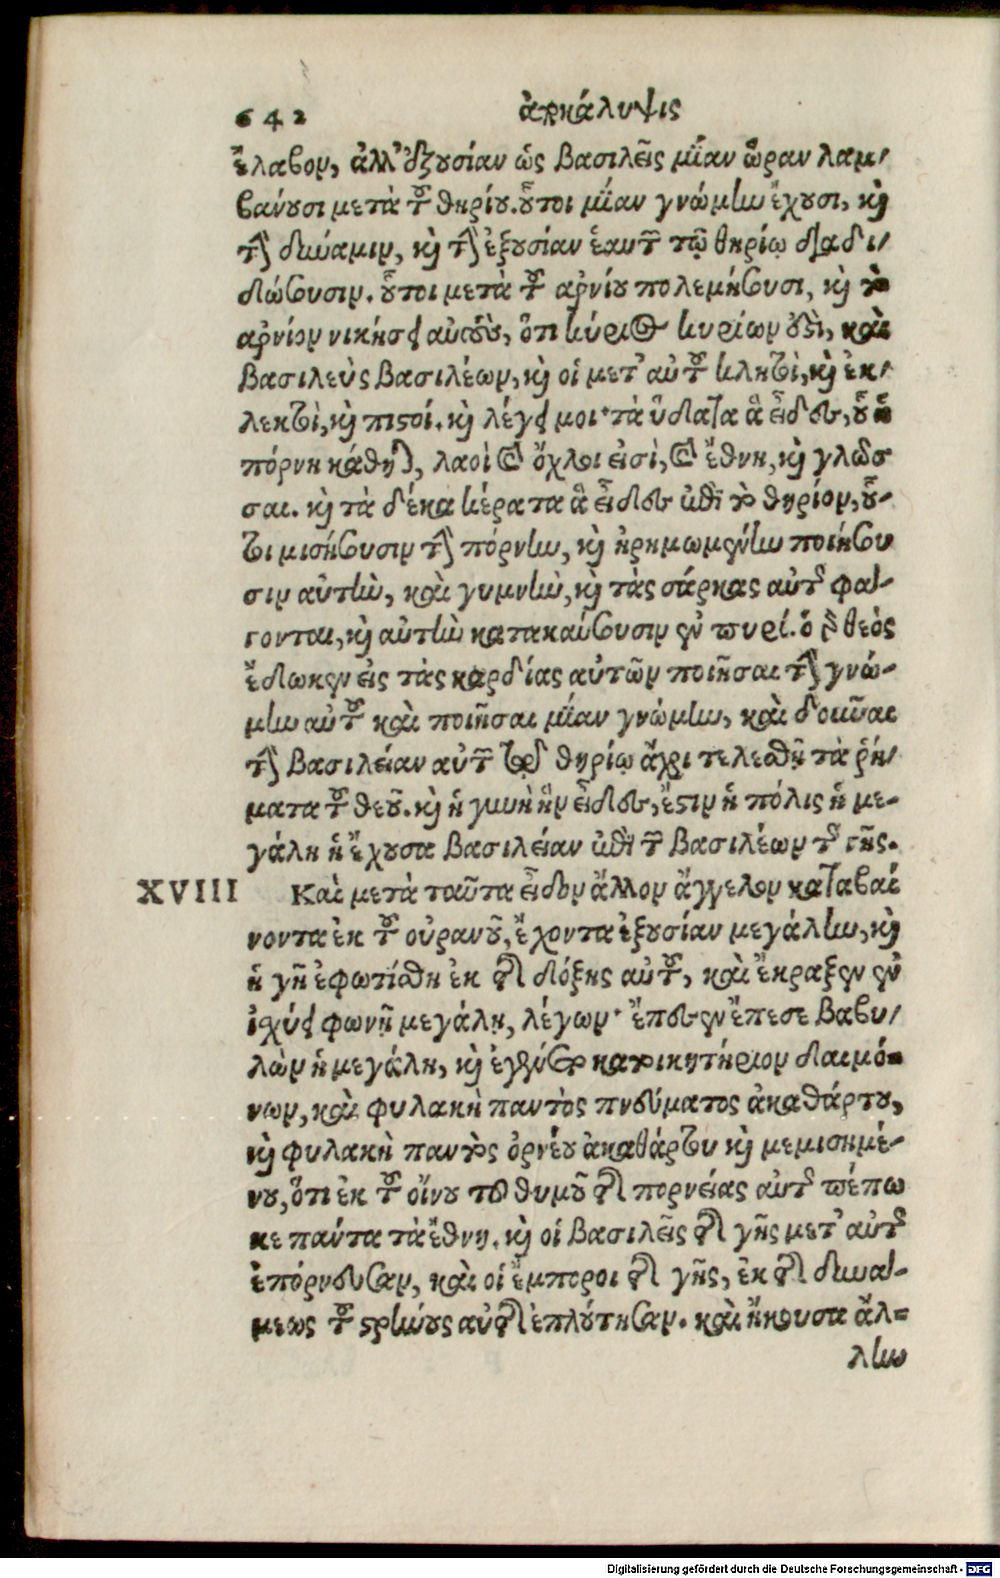 642 ἀποκάλυψις
ἔλαβον, ἀλλ' ἐξουσίαν ὡς βασιλεῖς μίαν ὥραν λαμ/
βάνουσι μετὰ τοῦ θηρίου. οὗτοι μίαν γνώμην ἔχουσι, καὶ
τὴν δύναμιν, καὶ τὴν ἐξουσίαν ἑαυτῶν τῷ θηρίῳ διαδι/
δώσουσιν. οὗτοι μετὰ τοῦ ἀρνίου πολεμήσουσι, καὶ τὸ
ἀρνίον νικήσει αὐτούς, ὅτι κύριος κυρίων ἐστὶ, καὶ
βασιλεὺς βασιλέων, καὶ οἱ μετ' αὐτοῦ κλητοὶ, καὶ ἐκ/
λεκτοὶ, καὶ πιστοί. καὶ λέγει μοι· τὰ ὕδατα ἃ εἶδες, οὗ ἡ
πόρνη κάθηται, λαοὶ καὶ ὄχλοι εἰσὶ, καὶ ἔθνη, καὶ γλῶσ
σαι. καὶ τὰ δέκα κέρατα ἃ εἶδες ἐπὶ τὸ θηρίον, οὗ-
τοι μισήσουσιν τὴν πόρνην, καὶ ἠρημωμένην ποιήσου
σιν αὐτὴν, καὶ γυμνὴν, καὶ τὰς σάρκας αὐτῆς φά-
γονται, καὶ αὐτὴν κατακαύσουσιν ἐν πυρί. ὁ γὰρ θεὸς
ἔδωκεν εἰς τὰς καρδίας αὐτῶν ποιῆσαι τὴν γνώ-
μην αὐτοῦ καὶ ποιῆσαι μίαν γνώμην, καὶ δοῦναι
τὴν βασιλείαν αὐτῶν τῷ θηρίῳ ἄχρι τελεσθῇ τὰ ῥή/
ματα τοῦ θεοῦ. καὶ ἡ γυνὴ ἣν εἶδες, ἔστιν ἡ πόλις ἡ με-
γάλη ἡ ἔχουσα βασιλείαν ἐπὶ τῶν βασιλέων τῆς γῆς.
XVIII Καὶ μετὰ ταῦτα εἶδον ἄλλον ἄγγελον καταβαί
νοντα ἐκ τοῦ οὐρανοῦ, ἔχοντα ἐξουσίαν μεγάλην, καὶ
ἡ γῆ ἐφωτίσθη ἐκ τῆς δόξης αὐτοῦ, καὶ ἔκραξεν ἐν
ἰσχύει φωνῇ μεγάλῃ, λέγων· ἔπεσεν ἔπεσε βαβυ/
λὼν ἡ μεγάλη, καὶ ἐγένετο κατοικητήριον δαιμό-
νων, καὶ φυλακὴ παντὸς πνεύματος ἀκαθάρτου,
καὶ φυλακὴ παντὸς ὀρνέου ἀκαθάρτου καὶ μεμισημέ-
νου, ὅτι ἐκ τοῦ οἴνου τοῦ θυμοῦ τῆς πορνείας αὐτῆς πέπω
κε πάντα τὰ ἔθνη. καὶ οἱ βασιλεῖς τῆς γῆς μετ' αὐτῆς
ἐπόρνευσαν, καὶ οἱ ἔμποροι τῆς γῆς, ἐκ τῆς δυνά-
μεως τοῦ στρήνους αὐτῆς ἐπλούτησαν. καὶ ἤκουσα ἄλ=
λην
Digitalisierung gefördert durch die Deutsche Forschungsgemeinschaft - DFG